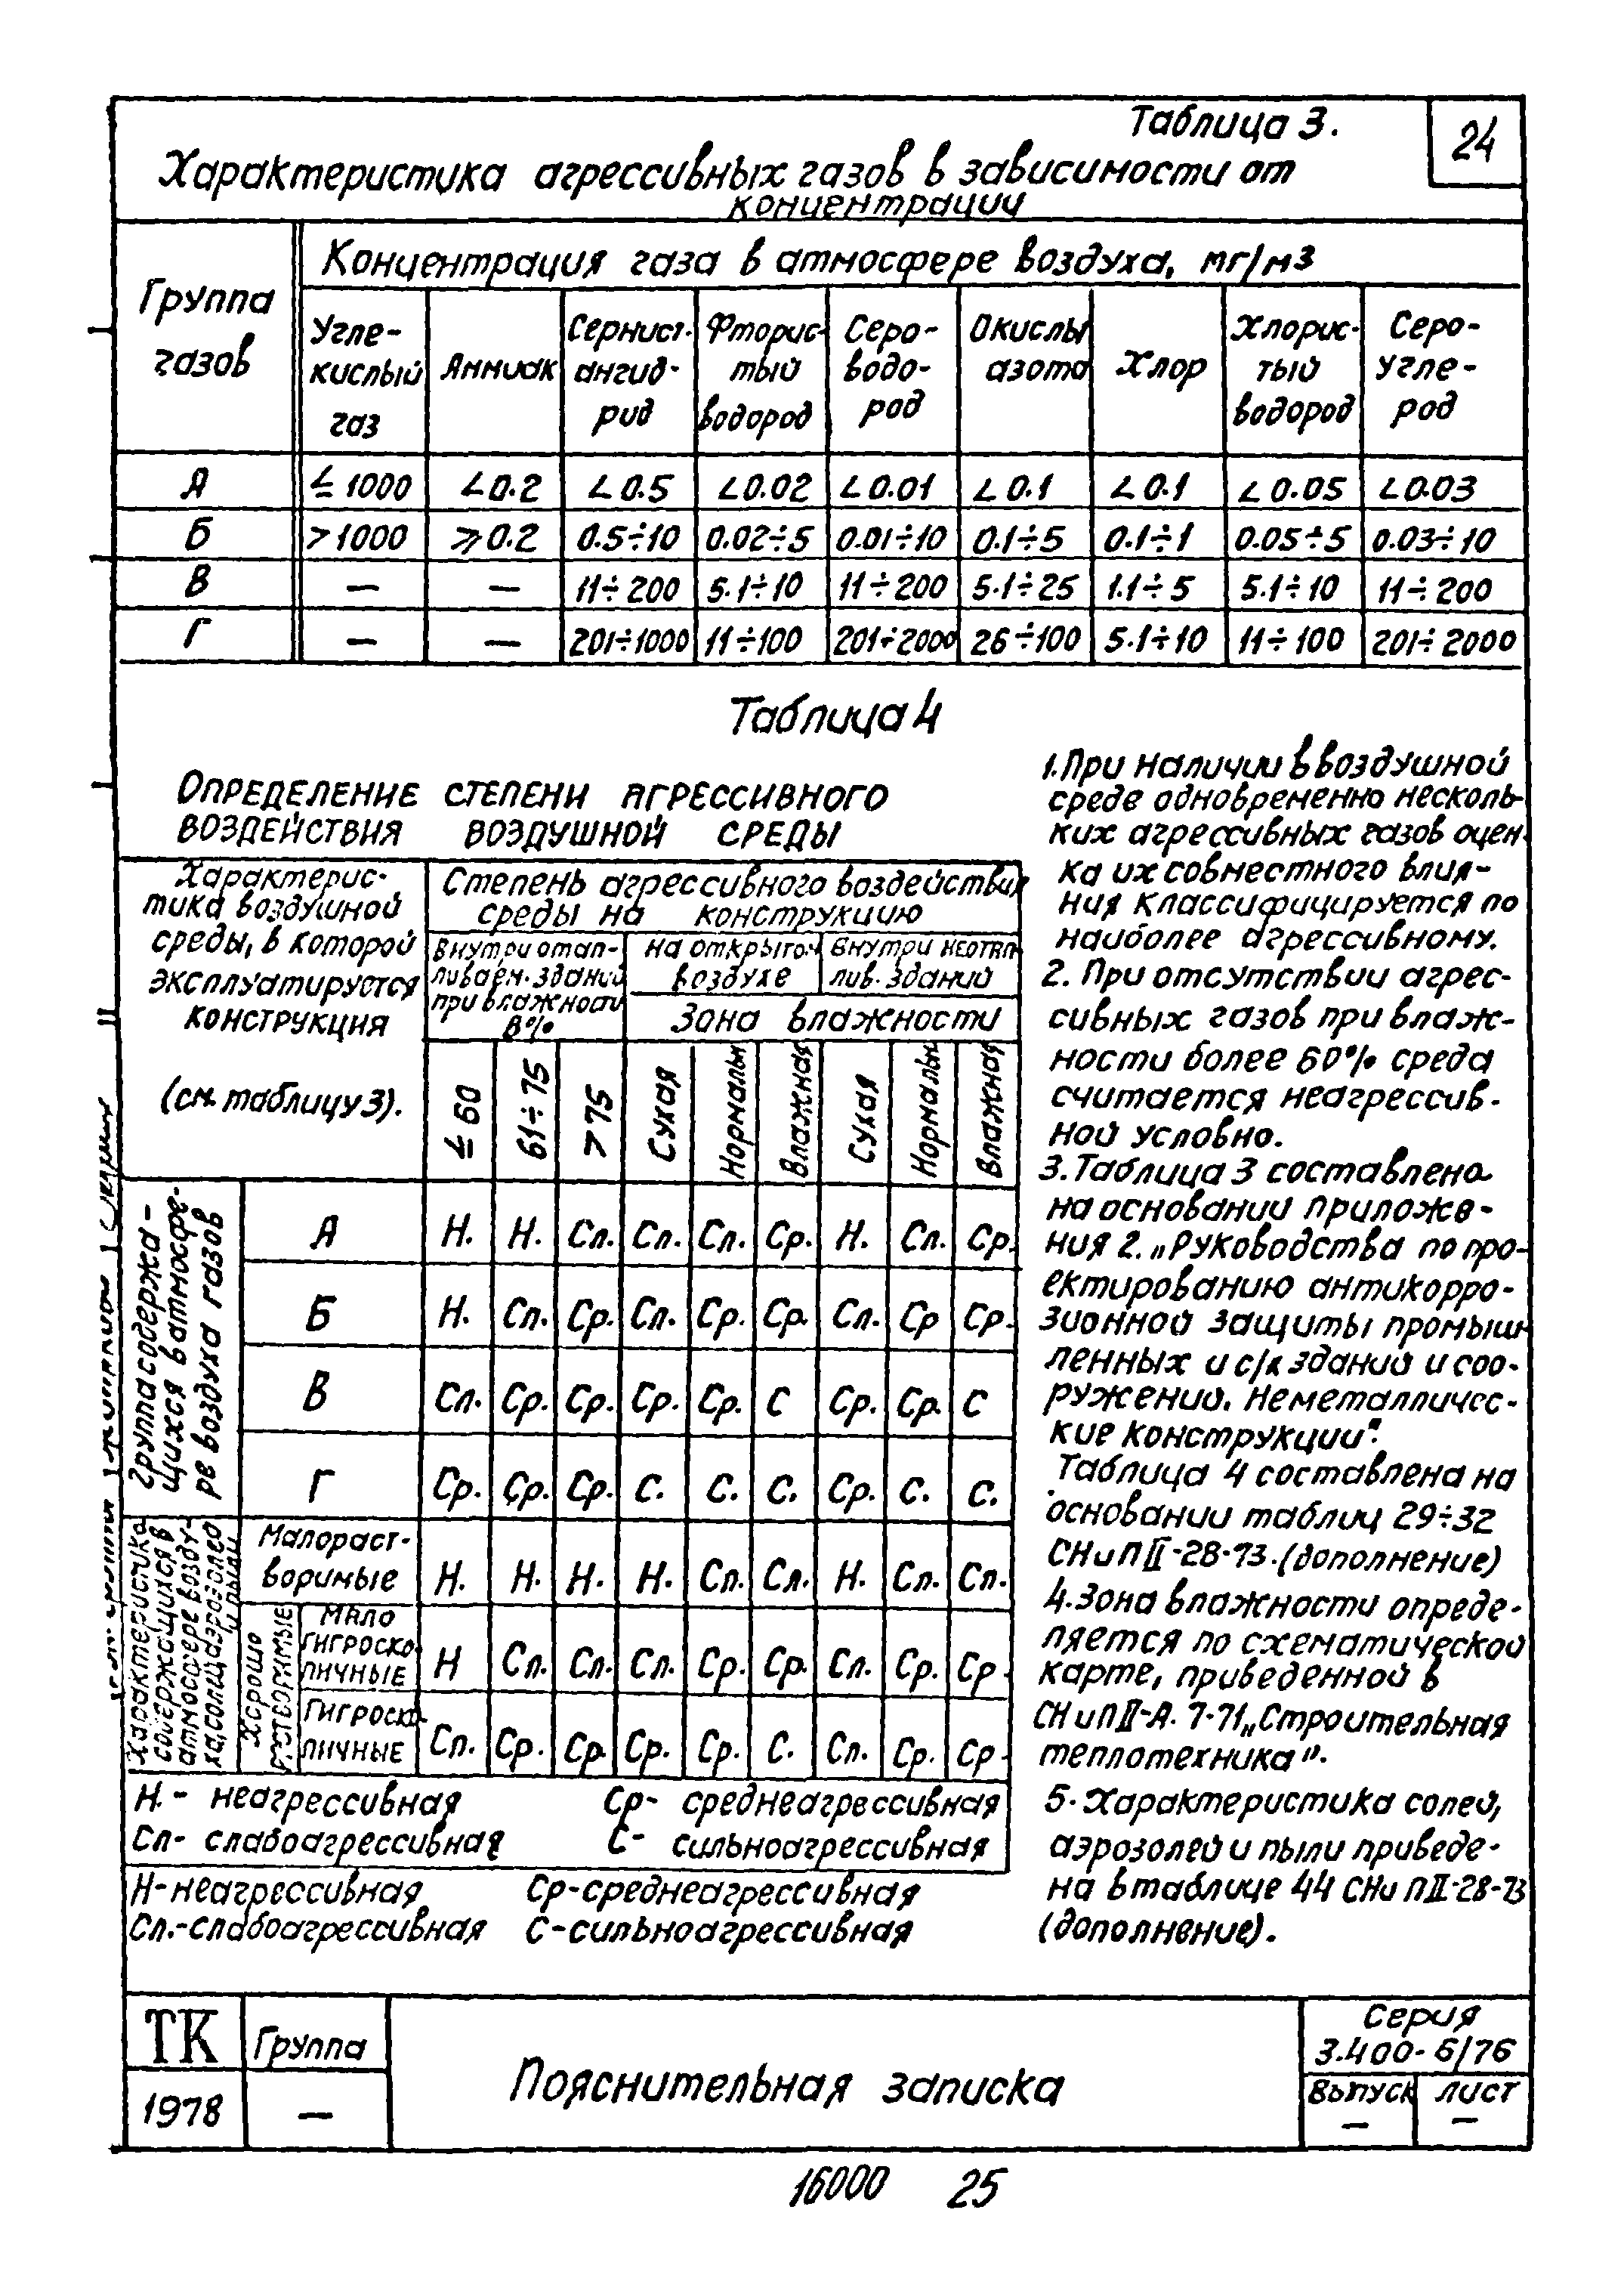 Таблица 3.
24
Характеристика агрессивных газов в зависимости от
концентрации
Группа газов
Концентрация газа в атмосфере воздуха, мг/м3
Угле-кислый газ | Аммиак | Сернист. ангид-рид | Фторис-тый водород | Серо-водо-род | Окислы азота | Хлор | Хлорис-тый водород | Серо-угле-род
А | ≤ 1000 | <0.2 | <0.5 | <0.02 | <0.01 | <0.1 | <0.1 | <0.05 | <0.03
Б | >1000 | ⩾0.2 | 0.5÷10 | 0.02÷5 | 0.01÷10 | 0.1÷5 | 0.1÷1 | 0.05÷5 | 0.03÷10
В | — | — | 11÷200 | 5.1÷10 | 11÷200 | 5.1÷25 | 1.1÷5 | 5.1÷10 | 11÷200
Г | — | — | 201÷1000 | 11÷100 | 201÷2000 | 26÷100 | 5.1÷10 | 11÷100 | 201÷2000
Таблица 4
ОПРЕДЕЛЕНИЕ СТЕПЕНИ АГРЕССИВНОГО
ВОЗДЕЙСТВИЯ ВОЗДУШНОЙ СРЕДЫ
Характерис-
тика воздушной
среды, в которой
эксплуатируется
конструкция
(см. таблицу 3).
Степень агрессивного воздействия
среды на конструкцию
Внутри отап-
ливаем. зданий
при влажности
В %
на открытом
воздухе
Внутри неотап
лив. зданий
Зона влажности
≤ 60 | 61÷75 | >75 | Сухая | Нормальн | Влажная | Сухая | Нормальн | Влажная
Группа содержа-
щихся в атмосфе-
ре воздуха газов
А | Н. | Н. | Сл. | Сл. | Сл. | Ср. | Н. | Сл. | Ср.
Б | Н. | Сл. | Ср. | Сл. | Ср. | Ср. | Сл. | Ср | Ср.
В | Сл. | Ср. | Ср. | Ср. | Ср. | С | Ср. | Ср. | С
Г | Ср. | Ср. | Ср. | С. | С. | С. | Ср. | С. | С.
Характеристика
содержащихся в
атмосфере возду-
ха, солей, аэрозолей
и пыли
Малораст-
воримые | Н. | Н. | Н. | Н. | Сл. | Сл. | Н. | Сл. | Сл.
Хорошо
растворимые
Мало
гигроско-
пичные | Н | Сл. | Сл. | Сл. | Ср. | Ср. | Сл. | Ср. | Ср.
Гигроско-
пичные | Сл. | Ср. | Ср. | Ср. | Ср. | С. | Сл. | Ср. | Ср
Н. - неагрессивная Ср- среднеагрессивная
Сл- слабоагрессивная С- сильноагрессивная
Н-неагрессивная Ср-среднеагрессивная
Сл.-слабоагрессивная С-сильноагрессивная
1. При наличии в воздушной
среде одновременно несколь-
ких агрессивных газов оцен-
ка их совместного влия-
ния классифицируется по
наиболее агрессивному.
2. При отсутствии агрес-
сивных газов при влаж-
ности более 60% среда
считается неагрессив-
ной условно.
3. Таблица 3 составлена
на основании приложе-
ния 2. „Руководства по про-
ектированию антикорро-
зионной защиты промыш-
ленных и с/х зданий и соо-
ружений. Неметалличес-
кие конструкции".
Таблица 4 составлена на
основании таблиц 29÷32
СНиП II-28-73. (дополнение)
4. Зона влажности опреде-
ляется по схематической
карте, приведенной в
СНиП II-А. 7-71 „Строительная
теплотехника".
5. Характеристика солей,
аэрозолей и пыли приведе-
на в таблице 44 СНиП II-28-73
(дополнение).
ТК
1978
Группа
—
Пояснительная записка
Серия
3.400-6/76
Выпуск
—
лист
—
16000 25